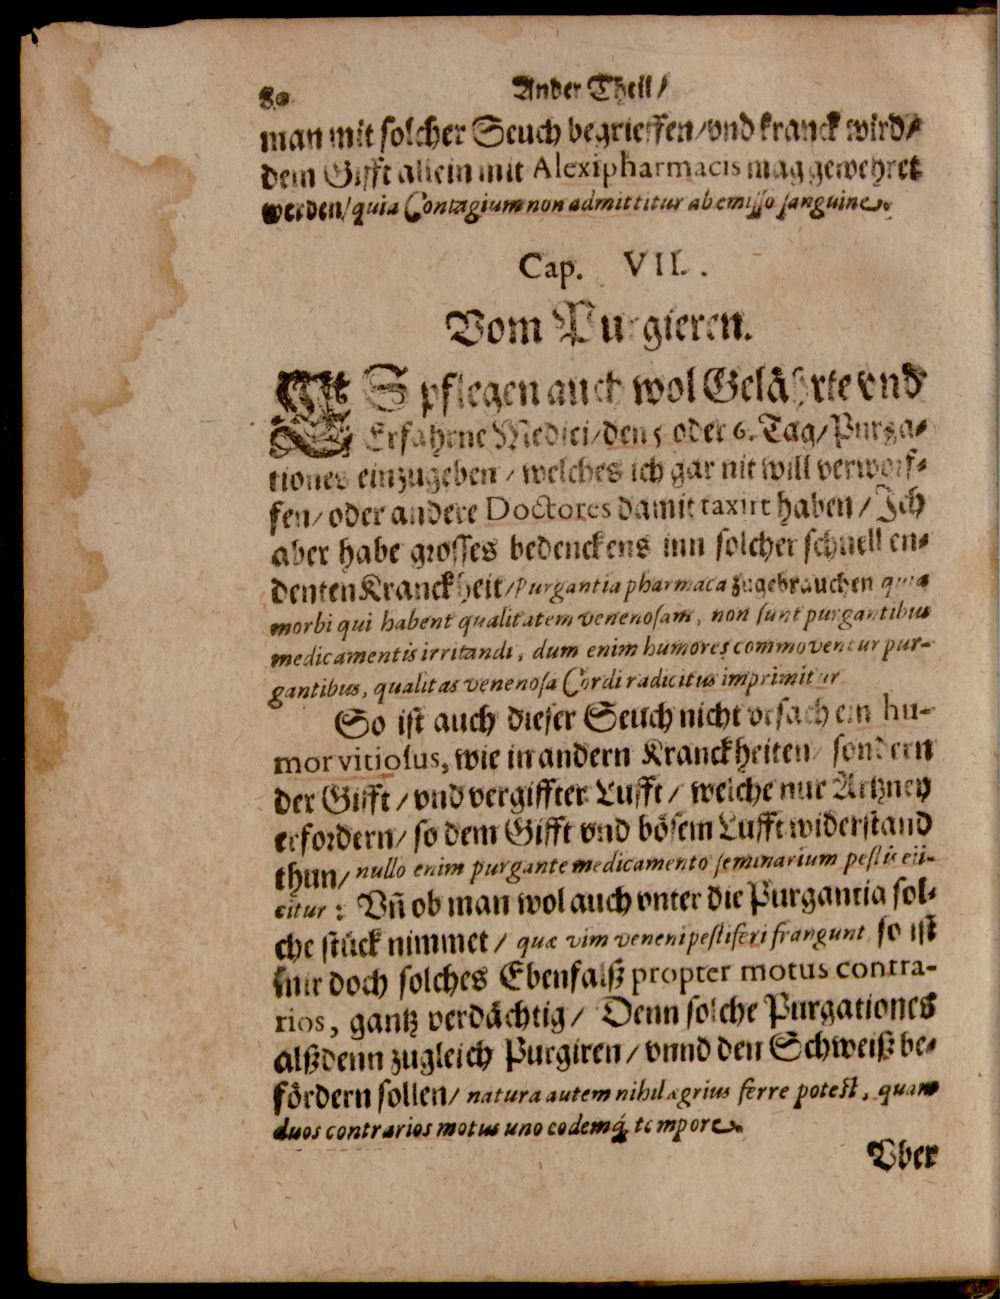 80 Ander Theil /
man mit solcher Seuch begrieffen / vnd kranck wird /
dem Gifft allein mit Alexipharmacis mag gewehret
werden / quia Contagium non admittitur ab emisso sanguine.
Cap. VII.
Vom Purgieren.
ES pflegen auch wol Gelährte vnd
Erfahrne Medici / den 5 oder 6. Tag / Purga-
tiones einzugeben / welches ich gar nit will verworf-
fen / oder andere Doctores damit taxirt haben / Ich
aber habe grosses bedenckens inn solcher schnell en-
denten Kranckheit / Purgantia pharmaca zugebrauchen quia
morbi qui habent qualitatem venenosam, non sunt purgantibus
medicamentis irritandi, dum enim humores commoventur pur-
gantibus, qualitas venenosa Cordi radicitus imprimitur
So ist auch dieser Seuch nicht vrsach ein hu-
mor vitiosus, wie in andern Kranckheiten / sondern
der Gifft / vnd vergiffter Lufft / welche nur Artzney
erfordern / so dem Gifft vnd bösem Lufft widerstand
thun / nullo enim purgante medicamento seminarium pestis eii-
citur : Vñ ob man wol auch vnter die Purgantia sol-
che stück nimmet / quæ vim veneni pestiferi frangunt so ist
mir doch solches Ebenfalß propter motus contra-
rios, gantz verdächtig / Denn solche Purgationes
alßdenn zugleich Purgiren / vnnd den Schweiß be-
fördern sollen / natura autem nihil ægrius ferre potest, quam
duos contrarios motus uno eodemq́ tempore.
Vber